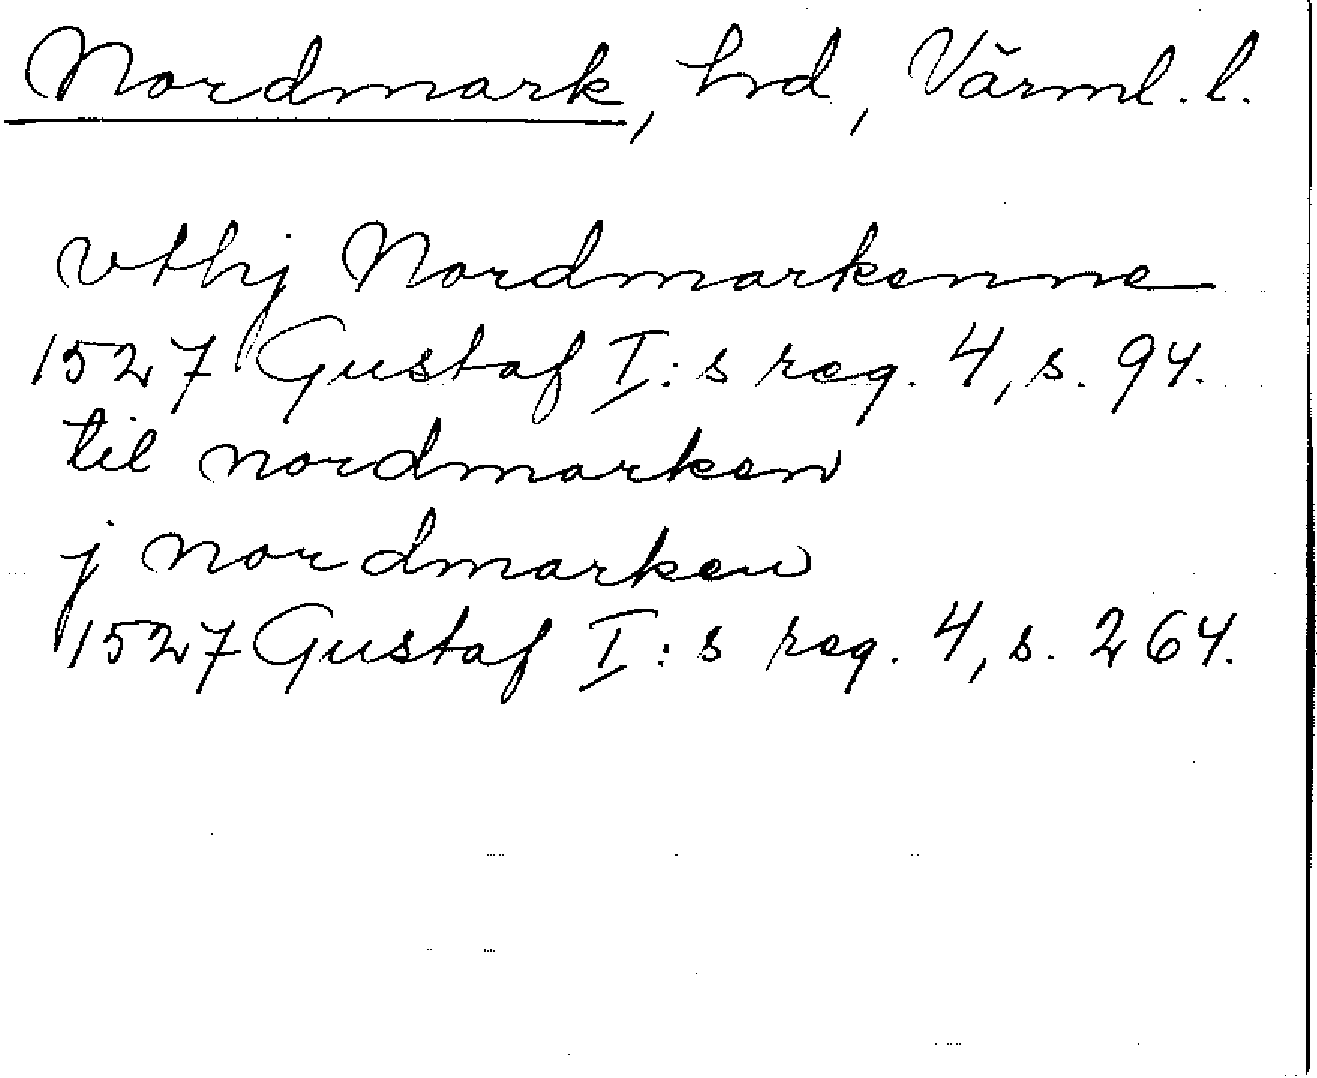 Nordmark, hrd, Värml. l.
vthj Nordmarkenne
1527 Gustaf I:s reg. 4, s. 94.
til nordmarken
j nordmarken
1527 Gustaf I:s reg. 4, s. 264.